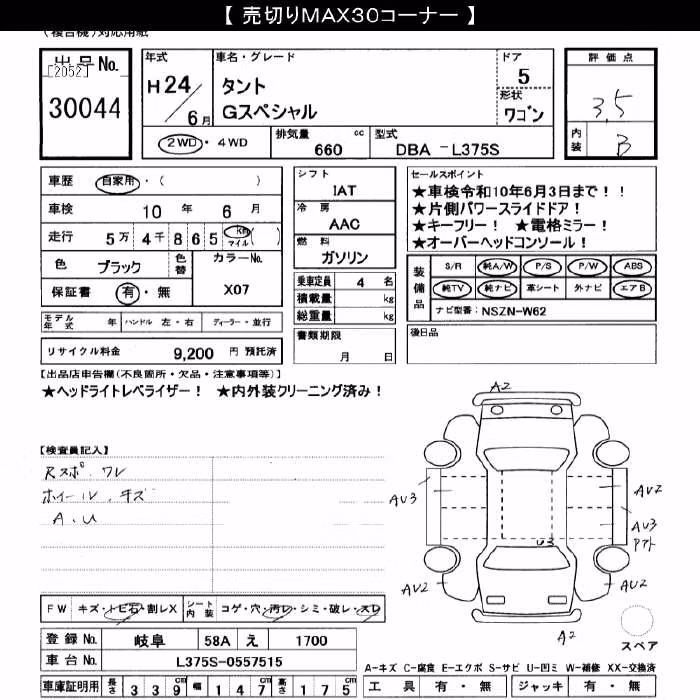 【 売切りMAX30コーナー 】
(複合機)対応用紙
出品No.
[2052]
30044
年式
H24/6月
車名・グレード
タント
Gスペシャル
ドア
5
形状
ワゴン
評価点
3.5
内装
B
2WD・4WD
排気量 cc
660
型式
DBA -L375S
車歴 自家用・( )
車検 10 年 6 月
走行 5万 4千 8 6 5 Km マイル ( )
色 ブラック 色替 カラーNo.
保証書 有・無 X07
モデル年式 年 ハンドル 左・右 ディーラー・並行
リサイクル料金 9,200 円 預託済
シフト
IAT
冷房
AAC
燃料
ガソリン
乗車定員 4 名
積載量 kg
総重量 kg
書類期限
月 日
セールスポイント
★車検令和10年6月3日まで!!
★片側パワースライドドア!
★キーフリー! ★電格ミラー!
★オーバーヘッドコンソール!
装備品
S/R 純A/W P/S P/W ABS
純TV 純ナビ 革シート 外ナビ エアB
ナビ型番: NSZN-W62
後日品
【出品店申告欄(不良箇所・欠品・注意事項等)】
★ヘッドライトレベライザー! ★内外装クリーニング済み!
【検査員記入】
Rスポ ワレ
ホイール、キズ
A、U
A2
AU3
AU2
AU3
アト
U3
AU2
AU2
A2
スペア
FW キズ・トビ石・割レX シート内装 コゲ・穴・汚レ・シミ・破レ・スレ
登録No. 岐阜 58A え 1700
車台No. L375S-0557515
車庫証明用 長さ 3 3 9 cm 幅 1 4 7 cm 高さ 1 7 5 cm
A-キズ C-腐食 E-エクボ S-サビ U-凹ミ W-補修 XX-交換済
工具 有・無 ジャッキ 有・無